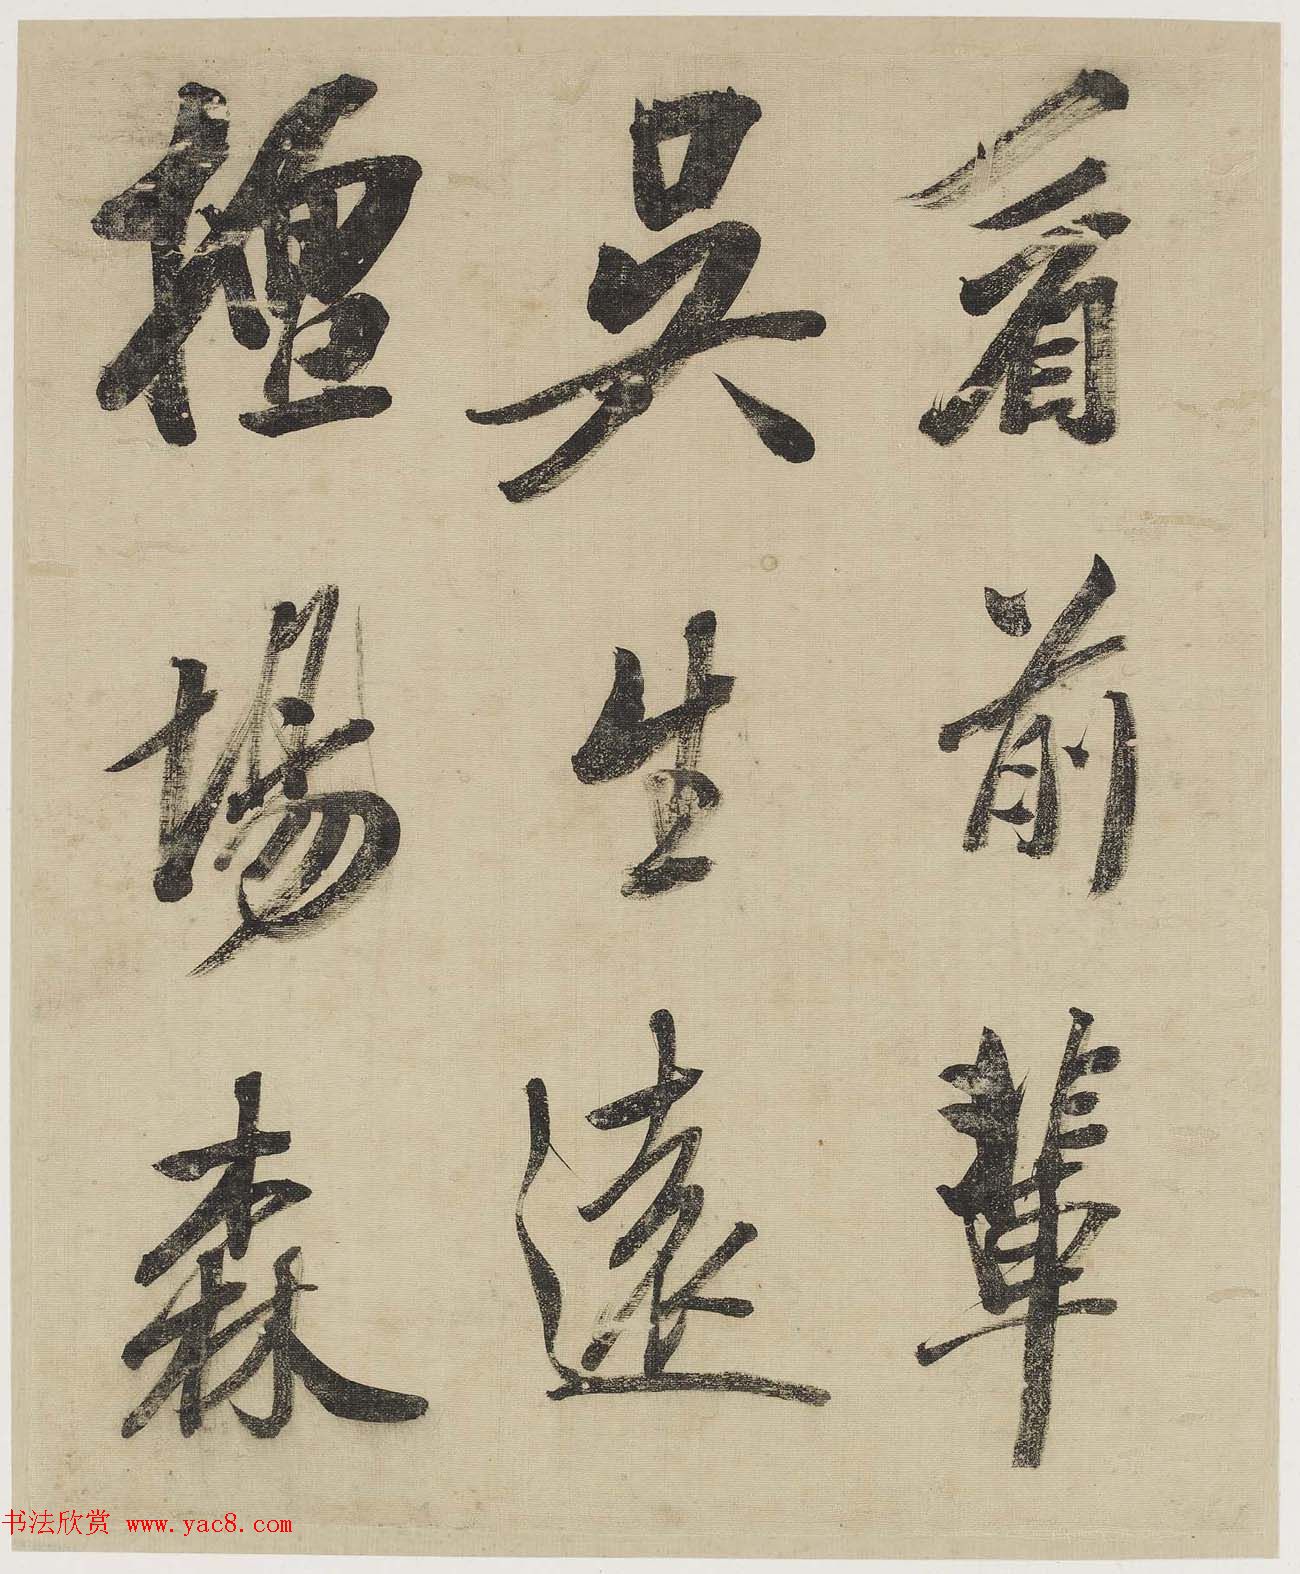 看前輩
吳生遠
擅場森
书法欣赏 www.yac8.com